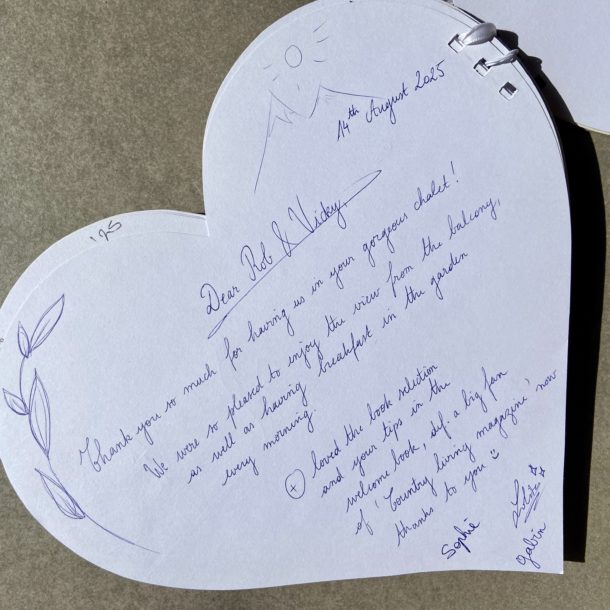 14th August 2025
'25
Dear Rob & Vicky,
Thank you so much for having us in your gorgeous chalet!
We were so pleased to enjoy the view from the balcony,
as well as having breakfast in the garden
every morning.
+ loved the book selection
and your tips in the
welcome book, def a big fan
of 'Country living magazine' now
thanks to you
Sophie
gabin